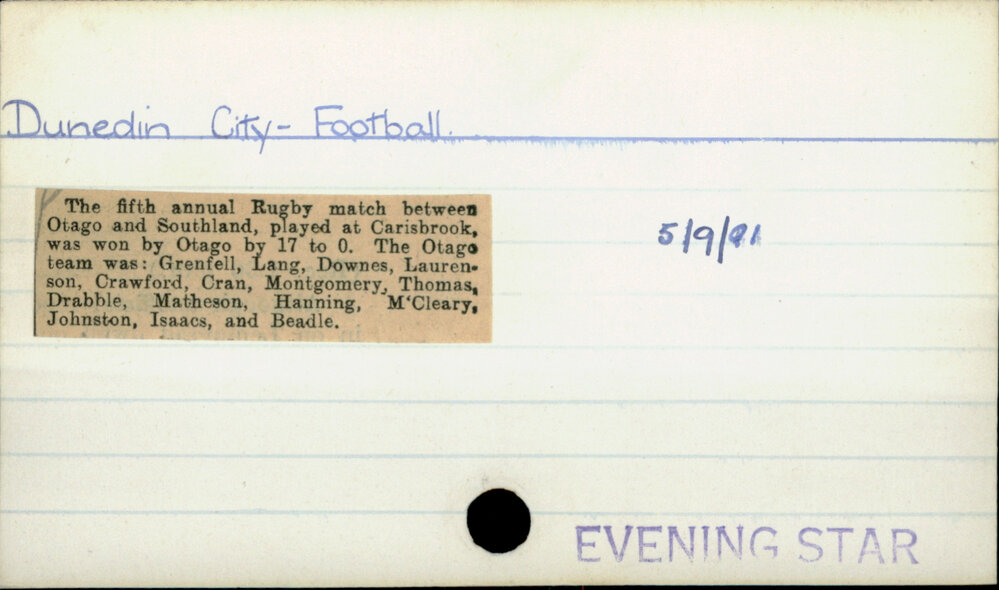 Dunedin City - Football.
The fifth annual Rugby match between
Otago and Southland, played at Carisbrook,
was won by Otago by 17 to 0. The Otago
team was: Grenfell, Lang, Downes, Lauren-
son, Crawford, Cran, Montgomery, Thomas,
Drabble, Matheson, Hanning, M'Cleary,
Johnston, Isaacs, and Beadle.
5/9/91
EVENING STAR